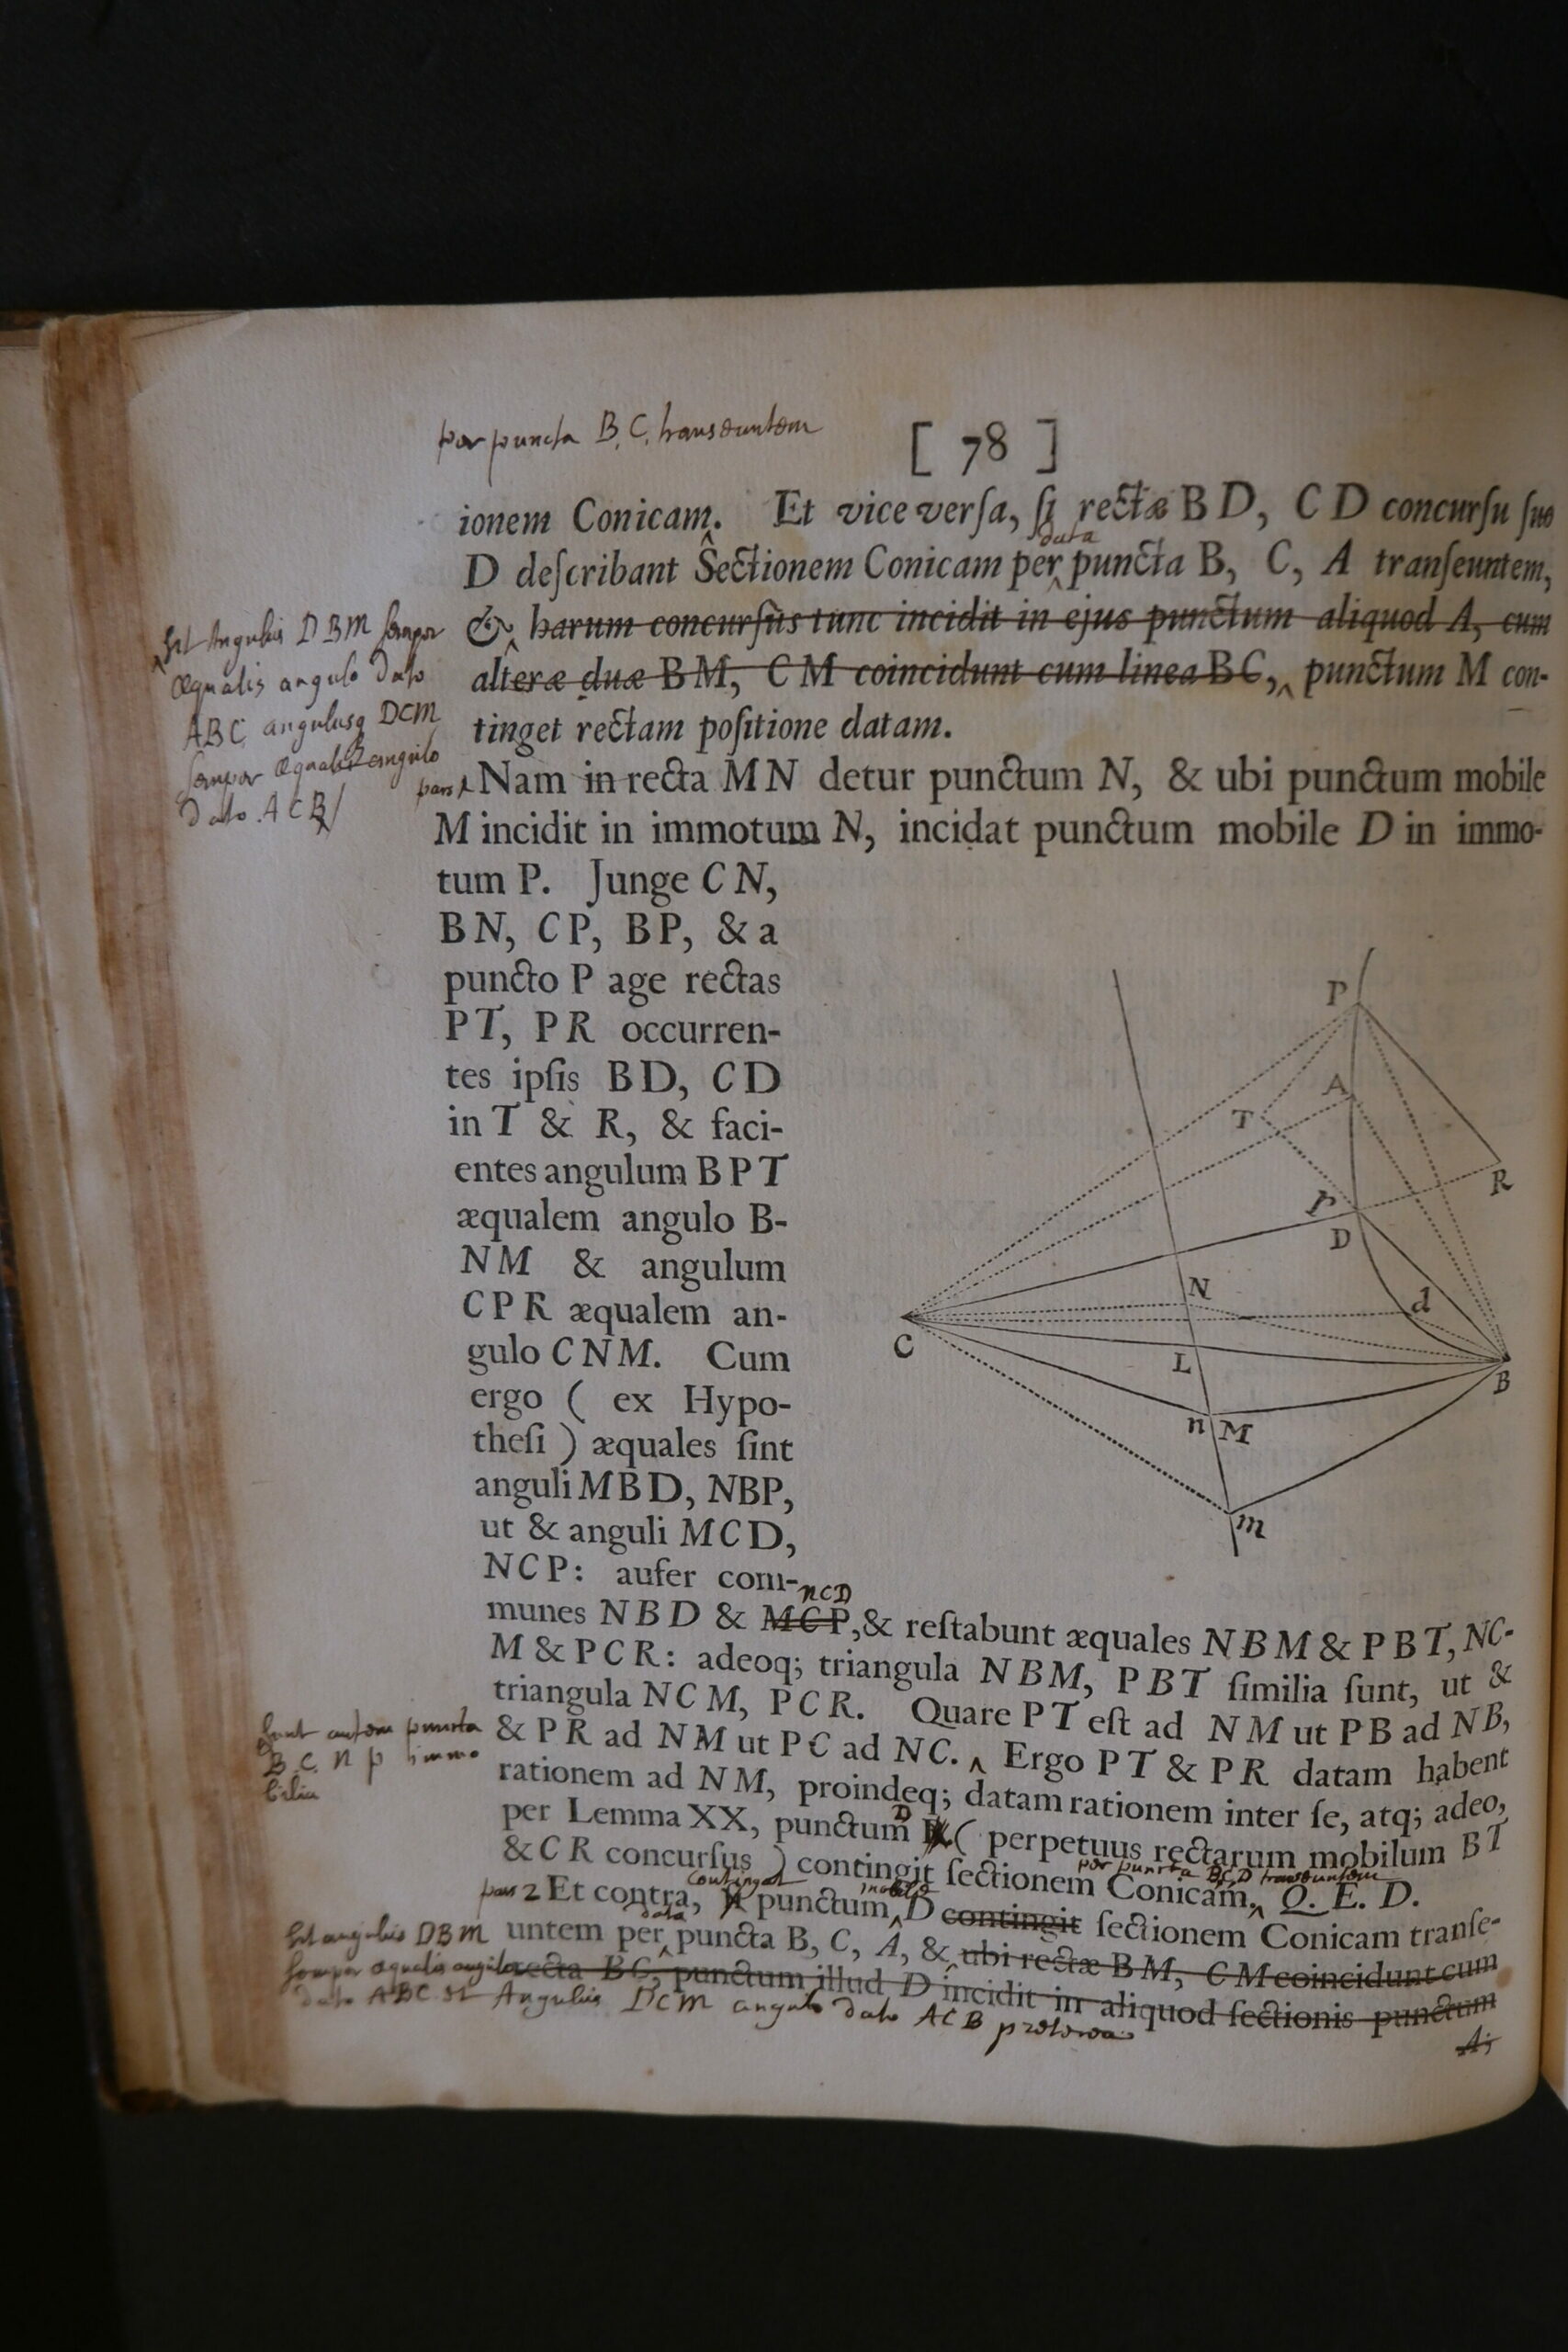 per puncta B, C, transeuntem
[ 78 ]
ionem Conicam. Et vice verſa, ſi rectæ B D, C D concurſu ſuo
data
D deſcribant Sectionem Conicam per puncta B, C, A tranſeuntem,
& harum concurſus tunc incidit in ejus punctum aliquod A, cum
alteræ duæ B M, C M coincidunt cum linea B C, punctum M con-
tinget rectam poſitione datam.
sit Angulus DBM semper
æqualis angulo dato
ABC angulusq DCM
semper æqualis angulo
dato ACB
pars 1
Nam in recta M N detur punctum N, & ubi punctum mobile
M incidit in immotum N, incidat punctum mobile D in immo-
tum P. Junge C N,
B N, C P, B P, & a
puncto P age rectas
P T, P R occurren-
tes ipſis B D, C D
in T & R, & faci-
entes angulum B P T
æqualem angulo B-
N M & angulum
C P R æqualem an-
gulo C N M. Cum
ergo ( ex Hypo-
theſi ) æquales ſint
anguli M B D, N B P,
ut & anguli M C D,
N C P: aufer com-
P
A
T
R
p
D
N
d
C
L
B
n M
m
NCD
munes N B D & M C P, & reſtabunt æquales N B M & P B T, N C-
M & P C R: adeoq; triangula N B M, P B T ſimilia ſunt, ut &
triangula N C M, P C R. Quare P T eſt ad N M ut P B ad N B,
& P R ad N M ut P C ad N C. Ergo P T & P R datam habent
sunt autem puncta
B, C, N, P immo
bilia
rationem ad N M, proindeq; datam rationem inter ſe, atq; adeo,
D
per Lemma XX, punctum ( perpetuus rectarum mobilum B T
& C R concurſus ) contingit ſectionem Conicam, Q. E. D.
per puncta B, C, D transeuntem
pars 2
contingat
mobile
Et contra, punctum D contingit ſectionem Conicam tranſe-
data
untem per puncta B, C, A, & ubi rectæ B M, C M coincidunt cum
recta B C, punctum illud D incidit in aliquod ſectionis punctum
A;
sit angulus DBM
semper æqualis angulo
dato ABC et Angulus DCM angulo dato ACB